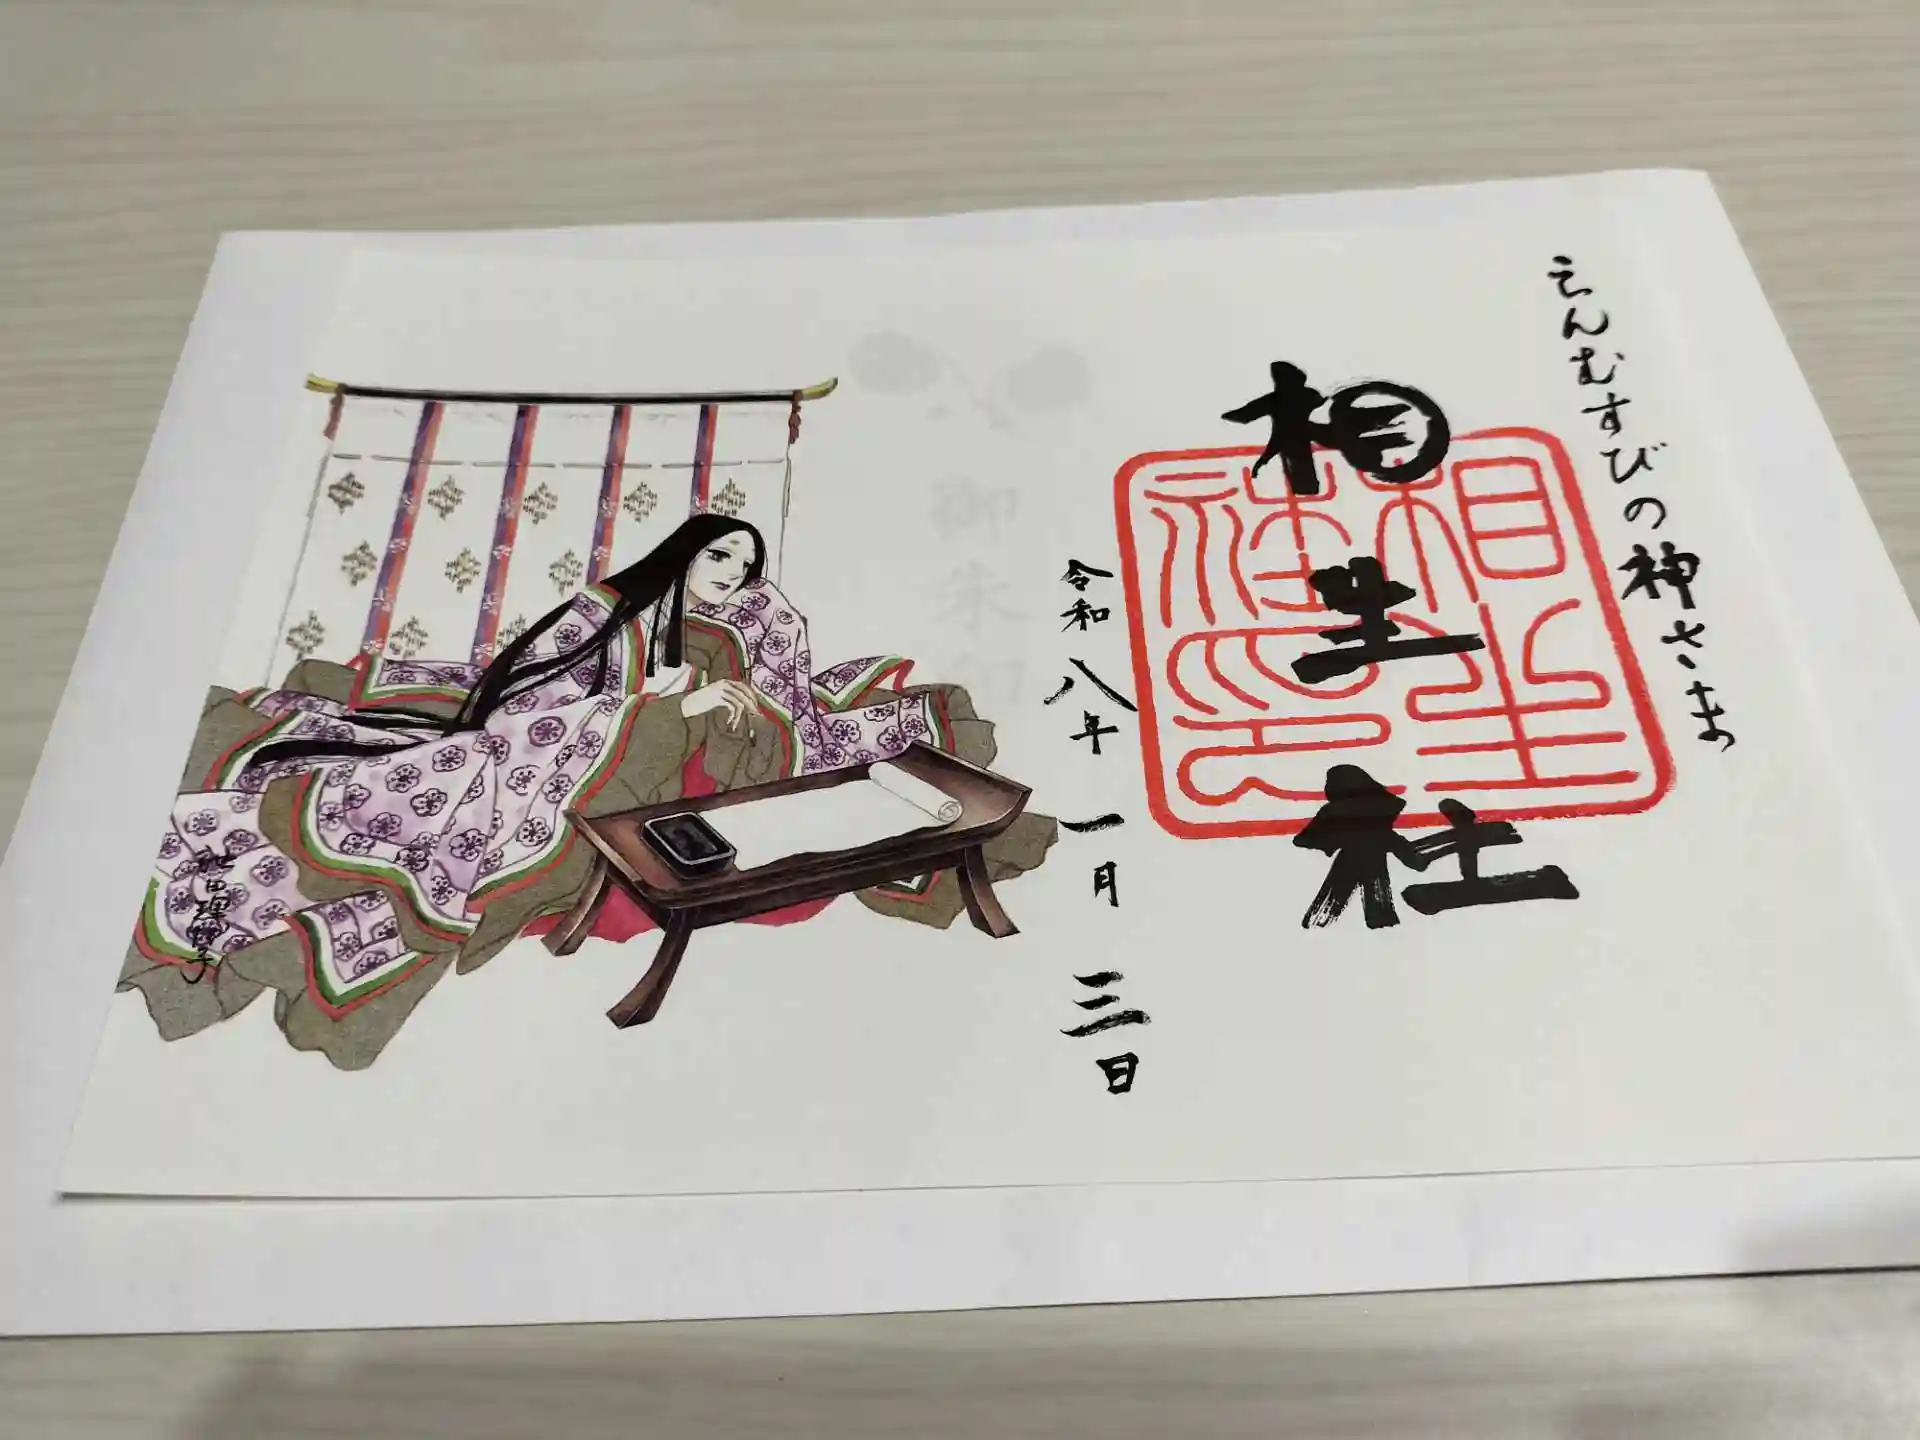 えんむすびの神さま
相生社
相生社印
令和八年 一月 三日
御朱印